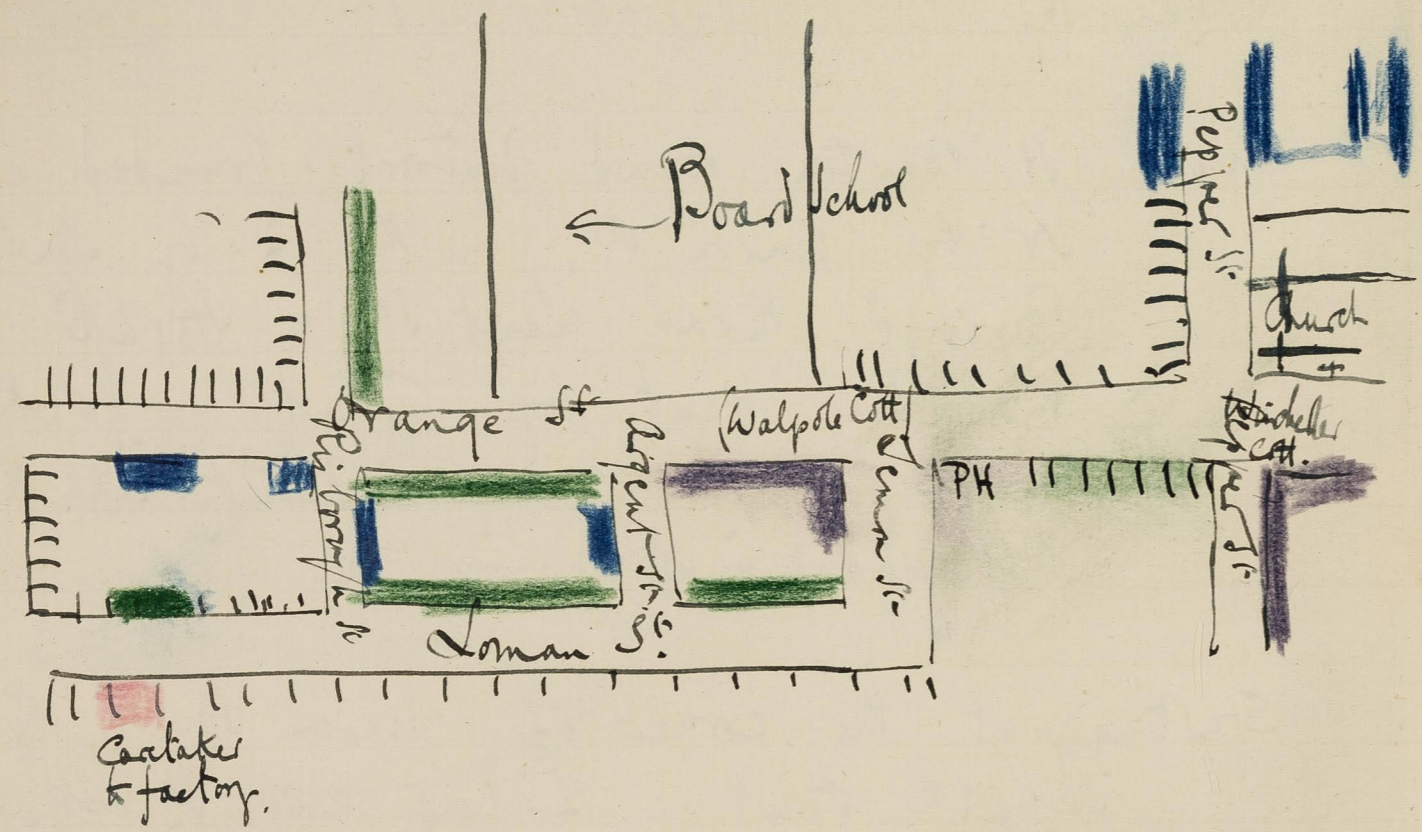 Board School
Pepper St
Church
Orange St
(Walpole Cott)
Winchester
Cott.
PH
Argent St.
Lemon St
Pepper St
Loman St.
Caretaker
to factory.